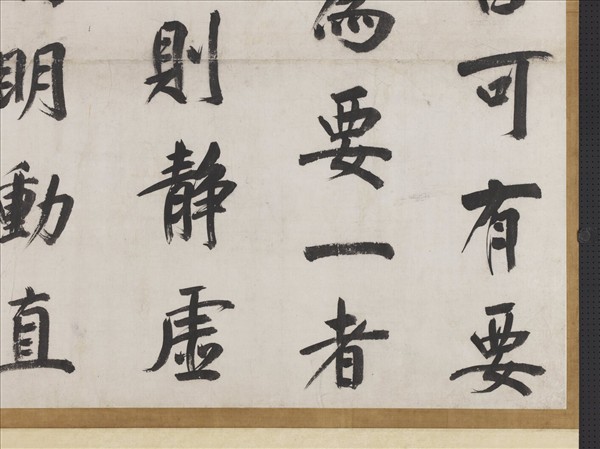 可有要
為要一者
則静虛
明動直